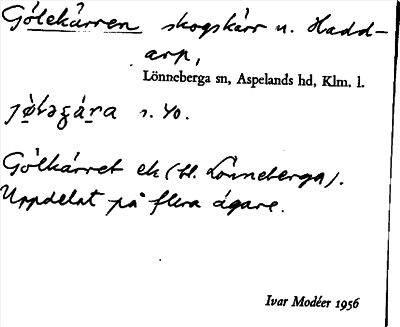 Gölekärren skogskärr u. Hadd-
arp,
Lönneberga sn, Aspelands hd, Klm. l.
s. 40.
Gölkärret ek (bl. Lönneberga).
Uppdelat på flera ägare.
Ivar Modéer 1956